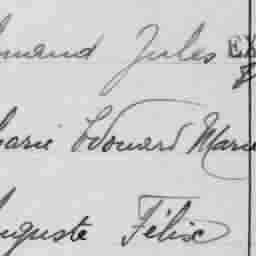 mand Jules
arie Edouard Marie
uguste Félix